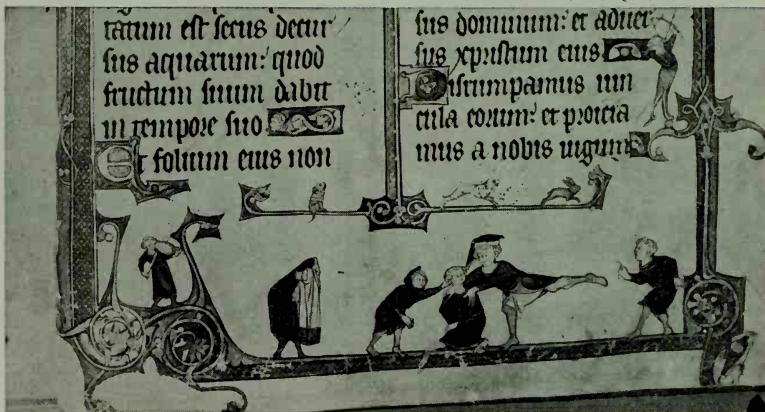 tatum est secus decur
sus aquarum: quod
fructum suum dabit
in tempore suo
Et folium eius non
sus dominum: et aduer
sus xpristum eius
Disrumpamus uin
cula eorum: et proicia
mus a nobis iugum